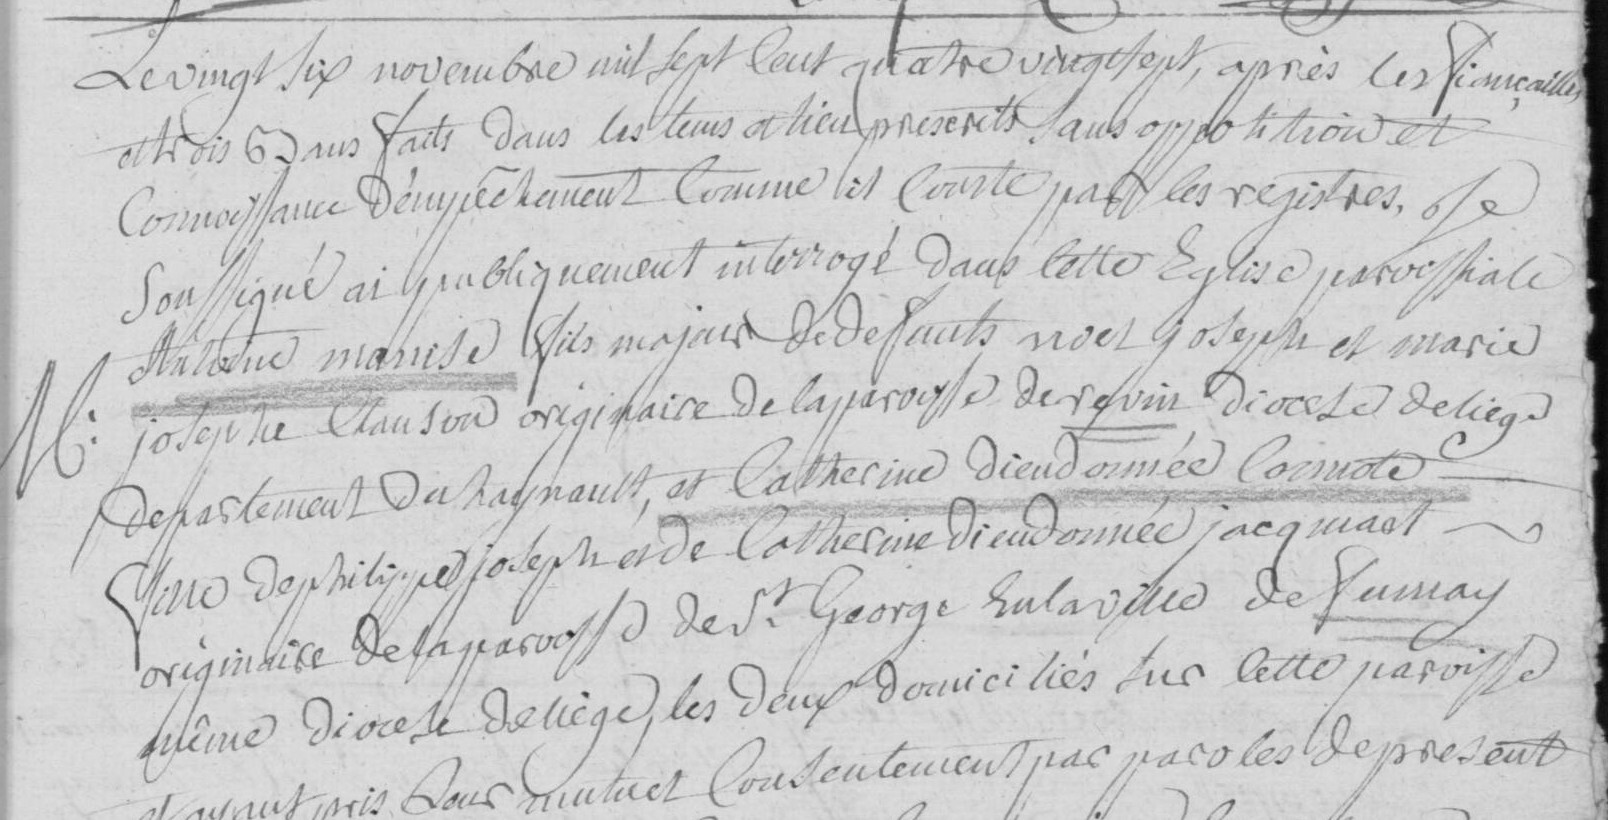 Le vingt six novembre mil sept cent quatre vingt sept, après les fiançailles
et trois Bans faits dans les tems et lieu prescrits sans opposition et
Connoissance d'empêchement Comme il Conste par les registres. Je
Soussigné ai publiquement interrogé dans cette Eglise paroissiale
Antoine manise fils majeur de defunts noel joseph et marie
josephe Clauson originaire de la paroisse de revin diocese de liege
departement du haynault, et Catherine dieudonnée Connote
fille de philippe joseph et de Catherine dieudonnée jacquart
originaire de la paroisse de St. George en la ville de fumay
même diocese de liége, les deux domiciliés sur cette paroisse
et ayant pris Leur mutuel Consentement par paroles de present